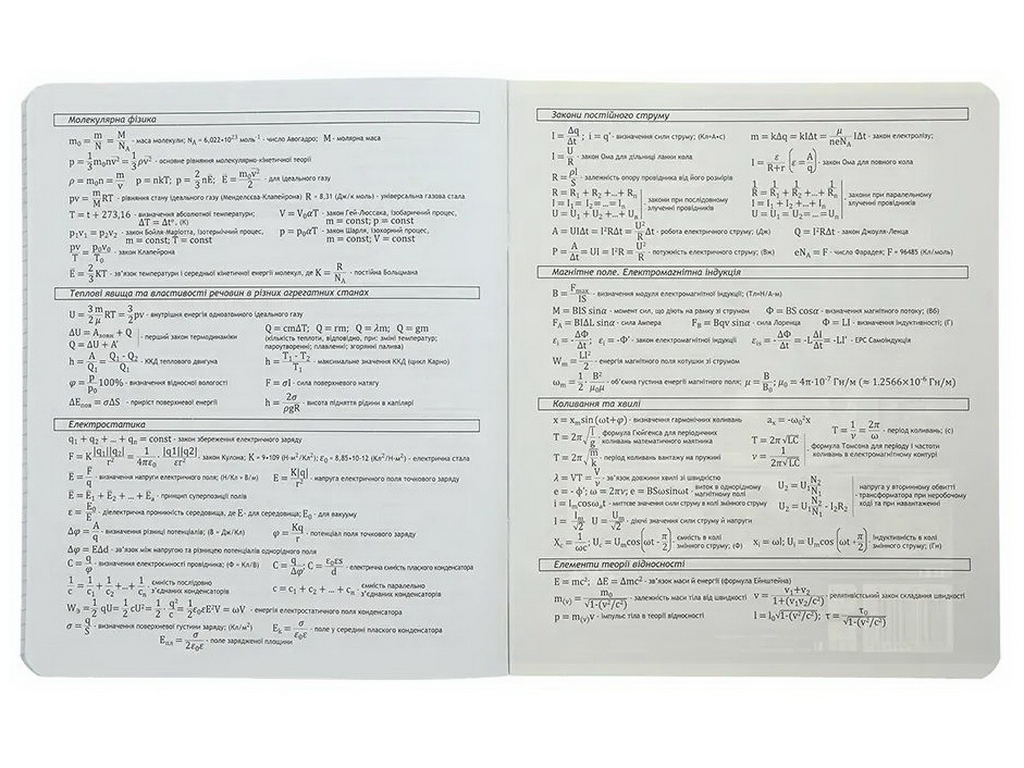 Молекулярна фізика
m₀ = m/N = M/N_A - маса молекули; N_A = 6,022•10²³ моль⁻¹ - число Авогадро; M - молярна маса
p = 1/3 m₀nv² = 1/3 ρv² - основне рівняння молекулярно-кінетичної теорії
ρ = m₀n = m/v p = nkT; p = 2/3 nĒ; Ē = m₀v²/2 - для ідеального газу
pv = m/M RT - рівняння стану ідеального газу (Менделєєва-Клапейрона) R = 8,31 (Дж/к моль) - універсальна газова стала
T = t + 273,16 - визначення абсолютної температури; V = V₀αT - закон Гей-Люссака, ізобаричний процес,
ΔT = Δt°. (К) m = const; p = const
p₁v₁ = p₂v₂ - закон Бойля-Маріотта, ізотермічний процес, p = p₀αT - закон Шарля, ізохорний процес,
m = const; T = const m = const; V = const
pv/T = p₀v₀/T₀ - закон Клапейрона
Ē = 2/3 KT - зв'язок температури і середньої кінетичної енергії молекул, де K = R/N_A - постійна Больцмана
Теплові явища та властивості речовин в різних агрегатних станах
U = 3/2 m/μ RT = 3/2 pv - внутрішня енергія одноатомного ідеального газу
ΔU = A_зовн + Q Q = cmΔT; Q = rm; Q = λm; Q = gm
Q = ΔU + A' - перший закон термодинаміки (кількість теплоти, відповідно, при: зміні температур;
пароутворені; плавленні; згорянні палива)
h = A/Q₁ = Q₁ - Q₂/Q₁ - ККД теплового двигуна h = T₁ - T₂/T₁ - максимальне значення ККД (цикл Карно)
φ = p/p₀ 100% - визначення відносної вологості F = σl - сила поверхневого натягу
ΔE_пов = σΔS - приріст поверхневої енергії h = 2σ/ρgR - висота підняття рідини в капілярі
Електростатика
q₁ + q₂ + ... + qₙ = const - закон збереження електричного заряду
F = K |q₁||q₂|/r² = 1/4πε₀ |q1||q2|/εr² - закон Кулона; K = 9•109 (Н·м²/Кл²); ε₀ = 8,85•10-12 (Кл²/Н·м²) - електрична стала
E = F/q - визначення напруги електричного поля; (Н/Кл = В/м) E = K|q|/r² - напруга електричного поля точкового заряду
Ē = Ē₁ + Ē₂ + ... + Ēₙ - принцип суперпозиції полів
ε = Ē₀/Ē - діелектрична проникність середовища, де Е- для середовища; Ē₀ - для вакууму
Δφ = A/q - визначення різниці потенціалів; (В = Дж/Кл) φ = Kq/r - потенціал поля точкового заряду
Δφ = EΔd - зв'язок між напругою та різницею потенціалів однорідного поля
C = q/φ - визначення електричного провідника; (Ф = Кл/В) C = q/Δφ; C = ε₀εs/d - електрична ємність плаского конденсатора
1/c = 1/c₁ + 1/c₂ +...+ 1/cₙ - ємність послідовно з'єднаних конденсаторів c = c₁ + c₂ + ... + cₙ - ємність паралельно з'єднаних конденсаторів
W_Э = 1/2 qU = 1/2 cU² = 1/2 · q²/c = 1/2 ε₀εE²V = ωV - енергія електростатичного поля конденсатора
σ = q/S - визначення поверхневої густини заряду; (Кл/м²) E_k = σ/ε₀ε - поле у середині плаского конденсатора
E_пл = σ/2ε₀ε - поле зарядженої площини
Закони постійного струму
I = Δq/Δt ; i = q' - визначення сили струму; (Кл=А•с) m = kΔq = kIΔt = μ/neN_A IΔt - закон електролізу;
I = U/R - закон Ома для дільниці ланки кола I = ε/R+r (ε = A/q) - закон Ома для повного кола
R = ρl/S - залежність опору провідника від його розмірів
R = R₁ + R₂ +...+ Rₙ 1/R = 1/R₁ + 1/R₂ +...+ 1/Rₙ
I = I₁ = I₂ =...= Iₙ - закони при послідовному злученні провідників I = I₁ + I₂ +...+ Iₙ - закони при паралельному злученні провідників
U = U₁ + U₂ +...+ Uₙ U = U₁ = U₂ =...= Uₙ
A = UIΔt = I²RΔt = U²/R Δt - робота електричного струму; (Дж) Q = I²RΔt - закон Джоуля-Ленца
P = A/Δt = UI = I²R = U²/R - потужність електричного струму; (Вт) eN_A = F - число Фарадея; F = 96485 (Кл/моль)
Магнітне поле. Електромагнітна індукція
B = F_max/IS - визначення модуля електромагнітної індукції; (Тл=Н/А·м)
M = BIS sinα - момент сил, що діють на рамку зі струмом Φ = BS cosα - визначення магнітного потоку; (Вб)
F_A = BIΔL sinα - сила Ампера F_B = Bqv sinα - сила Лоренца Φ = LI - визначення індуктивності; (Г)
εᵢ = -ΔΦ/Δt; εᵢ = -Φ' - закон електромагнітної індукції εᵢₛ = -ΔΦ/Δt = -L ΔI/Δt = -LI' - ЕРС Самоіндукція
Wₘ = LI²/2 - енергія магнітного поля котушки зі струмом
ωₘ = 1/2 · B²/μ₀μ - об'ємна густина енергії магнітного поля; μ = B/B₀; μ₀ = 4π·10⁻⁷ Гн/м (≈ 1.2566×10⁻⁶ Гн/м)
Коливання та хвилі
x = xₘsin(ωt+φ) - визначення гармонічних коливань aₓ = -ω₀²x T = 1/ν = 2π/ω - період коливань; (с)
T = 2π√l/g - формула Гюйгенса для періодичних коливань математичного маятника T = 2π√LC
T = 2π√m/k - період коливань вантажу на пружині ν = 1/2π√LC - формула Томсона для періоду і частоти коливань в електромагнітному контурі
λ = VT = V/ν - зв'язок довжини хвилі зі швидкістю
e = - φ'; ω = 2πν; e = BSωsinωt - виток в однорідному магнітному полі U₂ = U₁ N₂/N₁ напруга у вторинному обвитті
i = Iₘcosωₙt - миттєве значення сили струму в колі змінного струму U₂ = U₁ N₂/N₁ - I₂R₂ - трансформатора при неробочому ході та при навантаженні
I = Iₘ/√2 U = Uₘ/√2 - діючі значення сили струму й напруги
X_c = 1/ωc; U_c = Uₘcos (ωt - π/2) ємність в колі змінного струму; (Ф) xᵢ = ωl; Uᵢ = Uₘcos (ωt + π/2) - індуктивність в колі змінного струму; (Гн)
Елементи теорії відносності
E = mc²; ΔE = Δmc² - зв'язок маси й енергії (формула Ейнштейна)
m₍ᵥ₎ = m₀/√1-(v²/c²) - залежність маси тіла від швидкості v = v₁+v₂/1+(v₁v₂/c²) - релятивістський закон складання швидкості
p = m₍ᵥ₎v - імпульс тіла в теорії відносності l = l₀√1-(v²/c²); τ = τ₀/√1-(v²/c²)